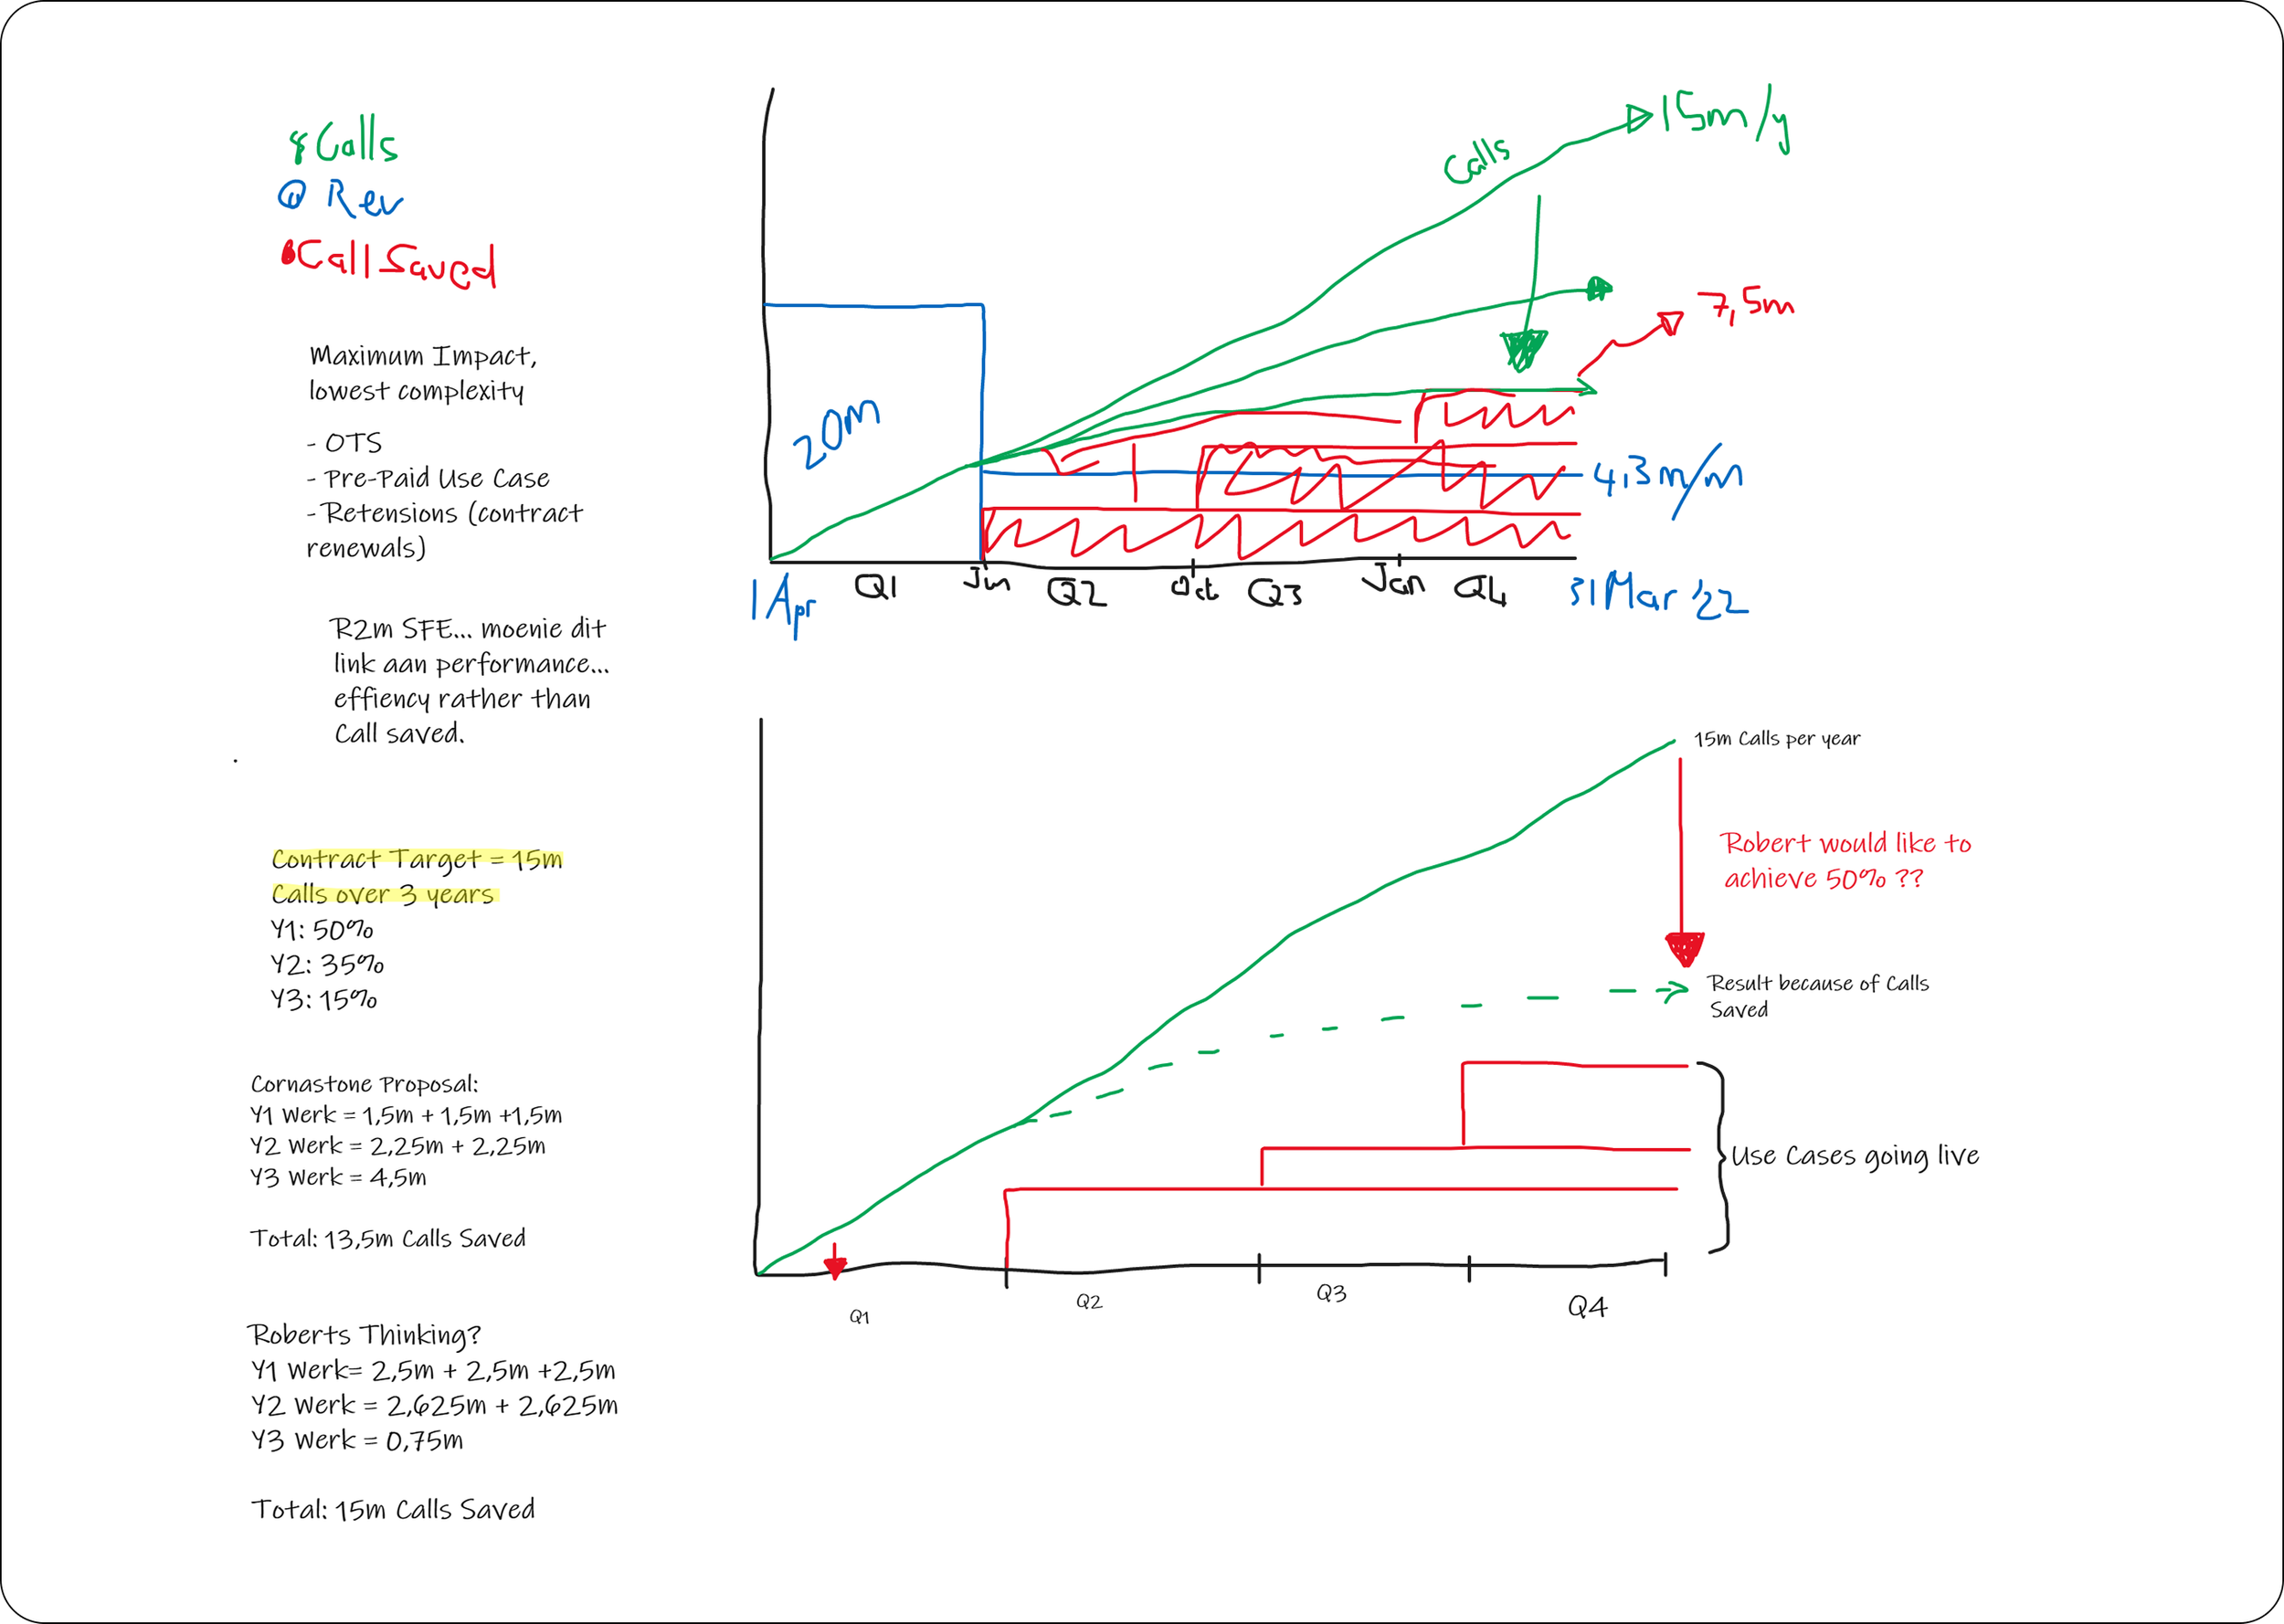 Calls
Rev
Call Saved
Maximum Impact,
lowest complexity
- OTS
- Pre-Paid Use Case
- Retensions (contract
renewals)
R2m SFE... moenie dit
link aan performance...
effiency rather than
Call saved.
Contract Target = 15m
Calls over 3 years
Y1: 50%
Y2: 35%
Y3: 15%
Cornastone Proposal:
Y1 Werk = 1,5m + 1,5m +1,5m
Y2 Werk = 2,25m + 2,25m
Y3 Werk = 4,5m
Total: 13,5m Calls Saved
Roberts Thinking?
Y1 Werk= 2,5m + 2,5m +2,5m
Y2 Werk = 2,625m + 2,625m
Y3 Werk = 0,75m
Total: 15m Calls Saved
Calls
15m/y
7,5m
20m
4,3m/m
1 Apr
Q1
Jun
Q2
Oct
Q3
Jan
Q4
31 Mar '22
15m Calls per year
Robert would like to
achieve 50% ??
Result because of Calls
Saved
Use Cases going live
Q1
Q2
Q3
Q4